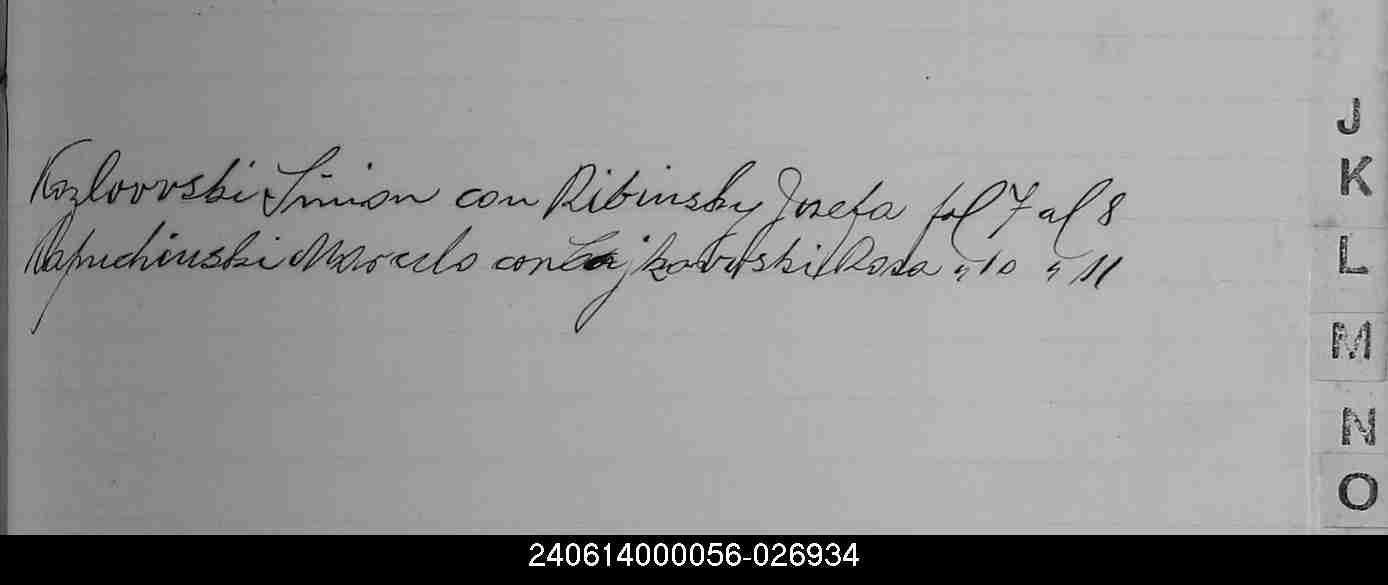 Kozlovvski Simion con Ribinsky Josefa fol 7 al 8
Kapuchinski Marcelo con Rosa " 10 " 11
J
K
L
M
N
O
240614000056-026934